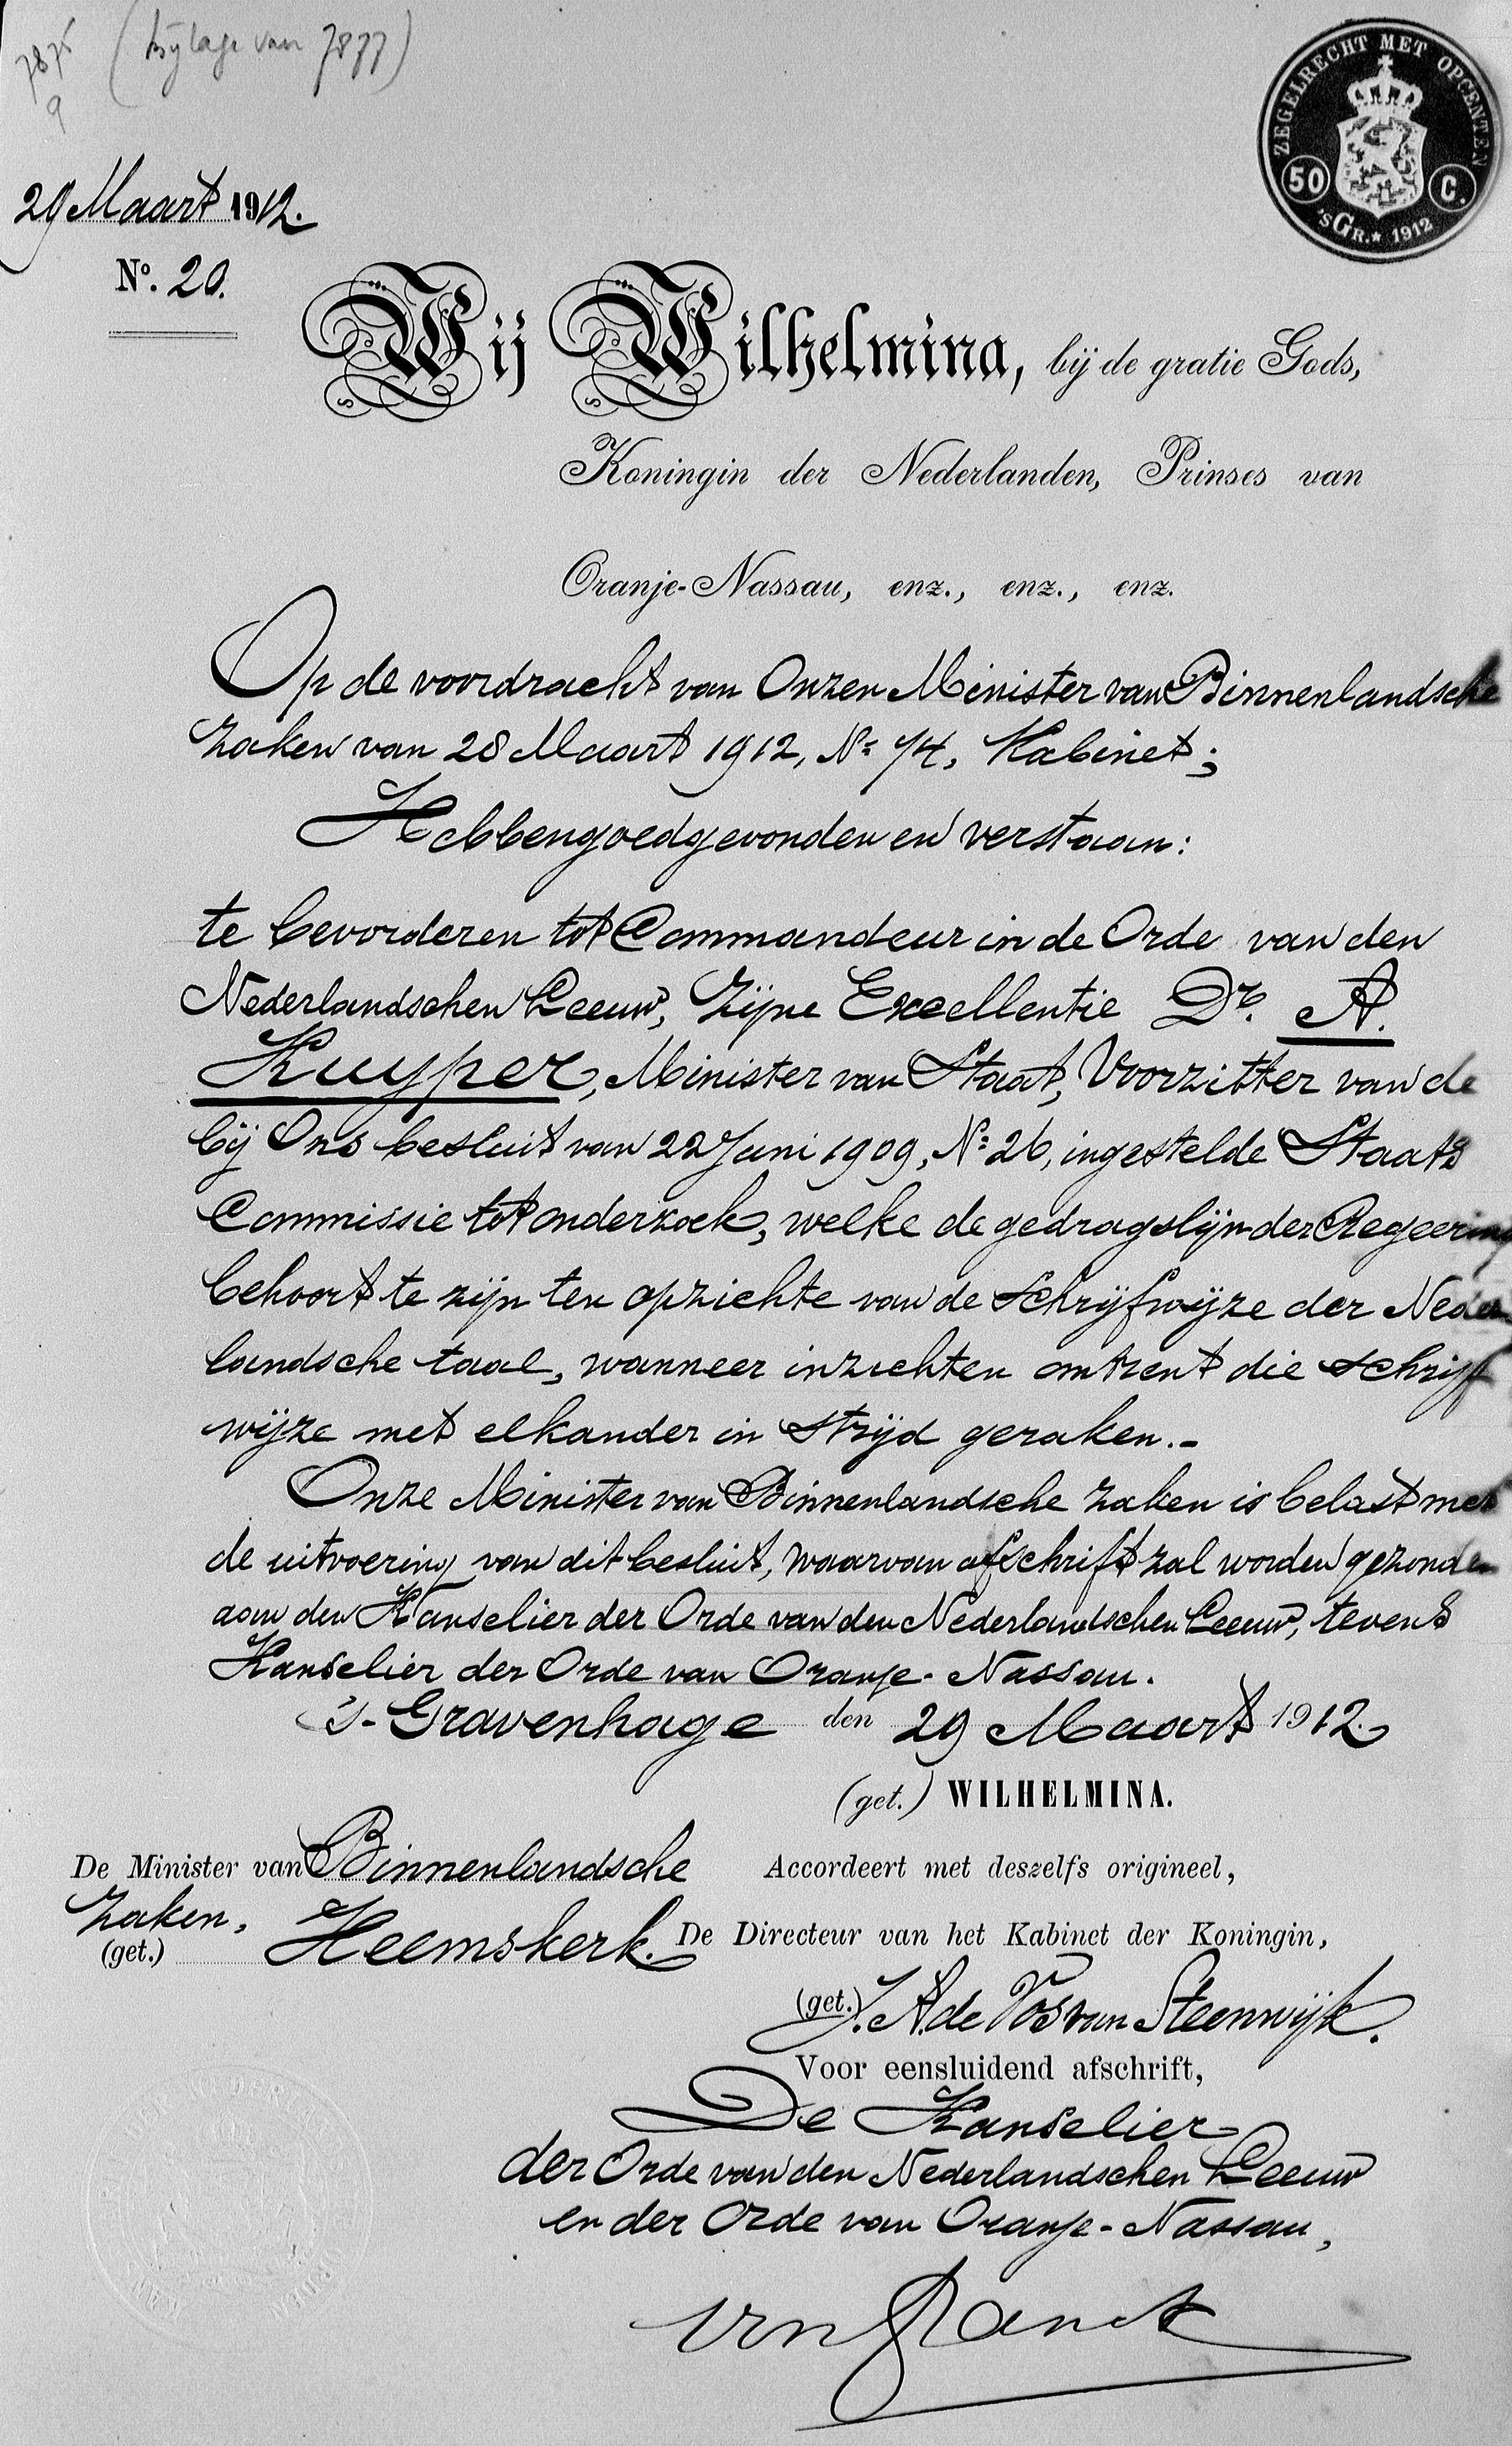 (bijlage van 7877)
7875
9
ZEGELRECHT MET OPCENTEN
50 C.
'sGR. * 1912
29 Maart 1912.
No. 20.
Wij Wilhelmina, bij de gratie Gods,
Koningin der Nederlanden, Prinses van
Oranje-Nassau, enz., enz., enz.
Op de voordracht van Onzen Minister van Binnenlandsche
Zaken van 28 Maart 1912, No 74, Kabinet;
Hebben goedgevonden en verstaan:
te bevorderen tot Commandeur in de Orde van den
Nederlandschen Leeuw, Zijne Excellentie Dr. A.
Kuyper, Minister van Staat, Voorzitter van de
bij Ons besluit van 22 Juni 1909, No 26, ingestelde Staats
Commissie tot onderzoek, welke de gedragslijn der Regeering
behoort te zijn ten opzichte van de schrijfwijze der Neder
landsche taal, wanneer inzichten omtrent die schrijf
wijze met elkander in strijd geraken.-
Onze Minister van Binnenlandsche Zaken is belast met
de uitvoering van dit besluit, waarvan afschrift zal worden gezonden
aan den Kanselier der Orde van den Nederlandschen Leeuw, tevens
Kanselier der Orde van Oranje-Nassau.
's-Gravenhage den 29 Maart 1912.
(get.) WILHELMINA.
De Minister van Binnenlandsche
Zaken,
(get.) Heemskerk.
Accordeert met deszelfs origineel,
De Directeur van het Kabinet der Koningin,
(get.) J. A. de Vos van Steenwijk.
Voor eensluidend afschrift,
De Kanselier
der Orde van den Nederlandschen Leeuw
en der Orde van Oranje-Nassau,